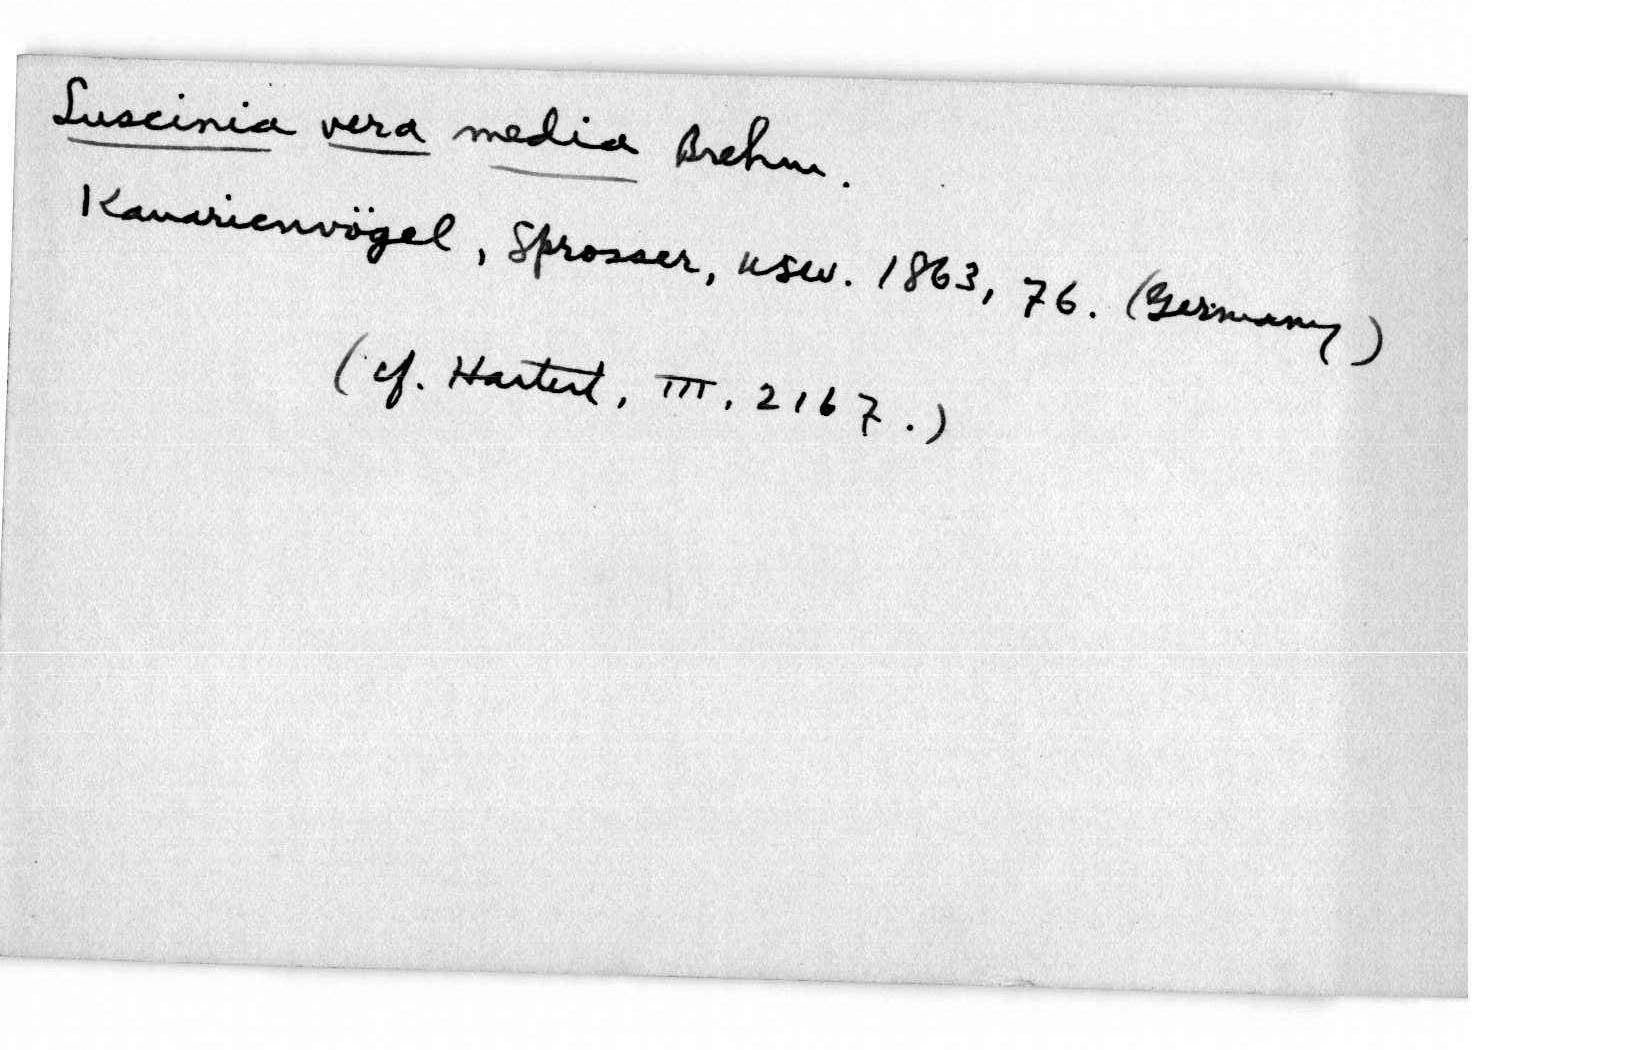 Luscinia vera media Brehm.
Kanarienvögel, Sprosser, usw. 1863, 76. (Germany)
(cf. Hartert, III, 2167.)